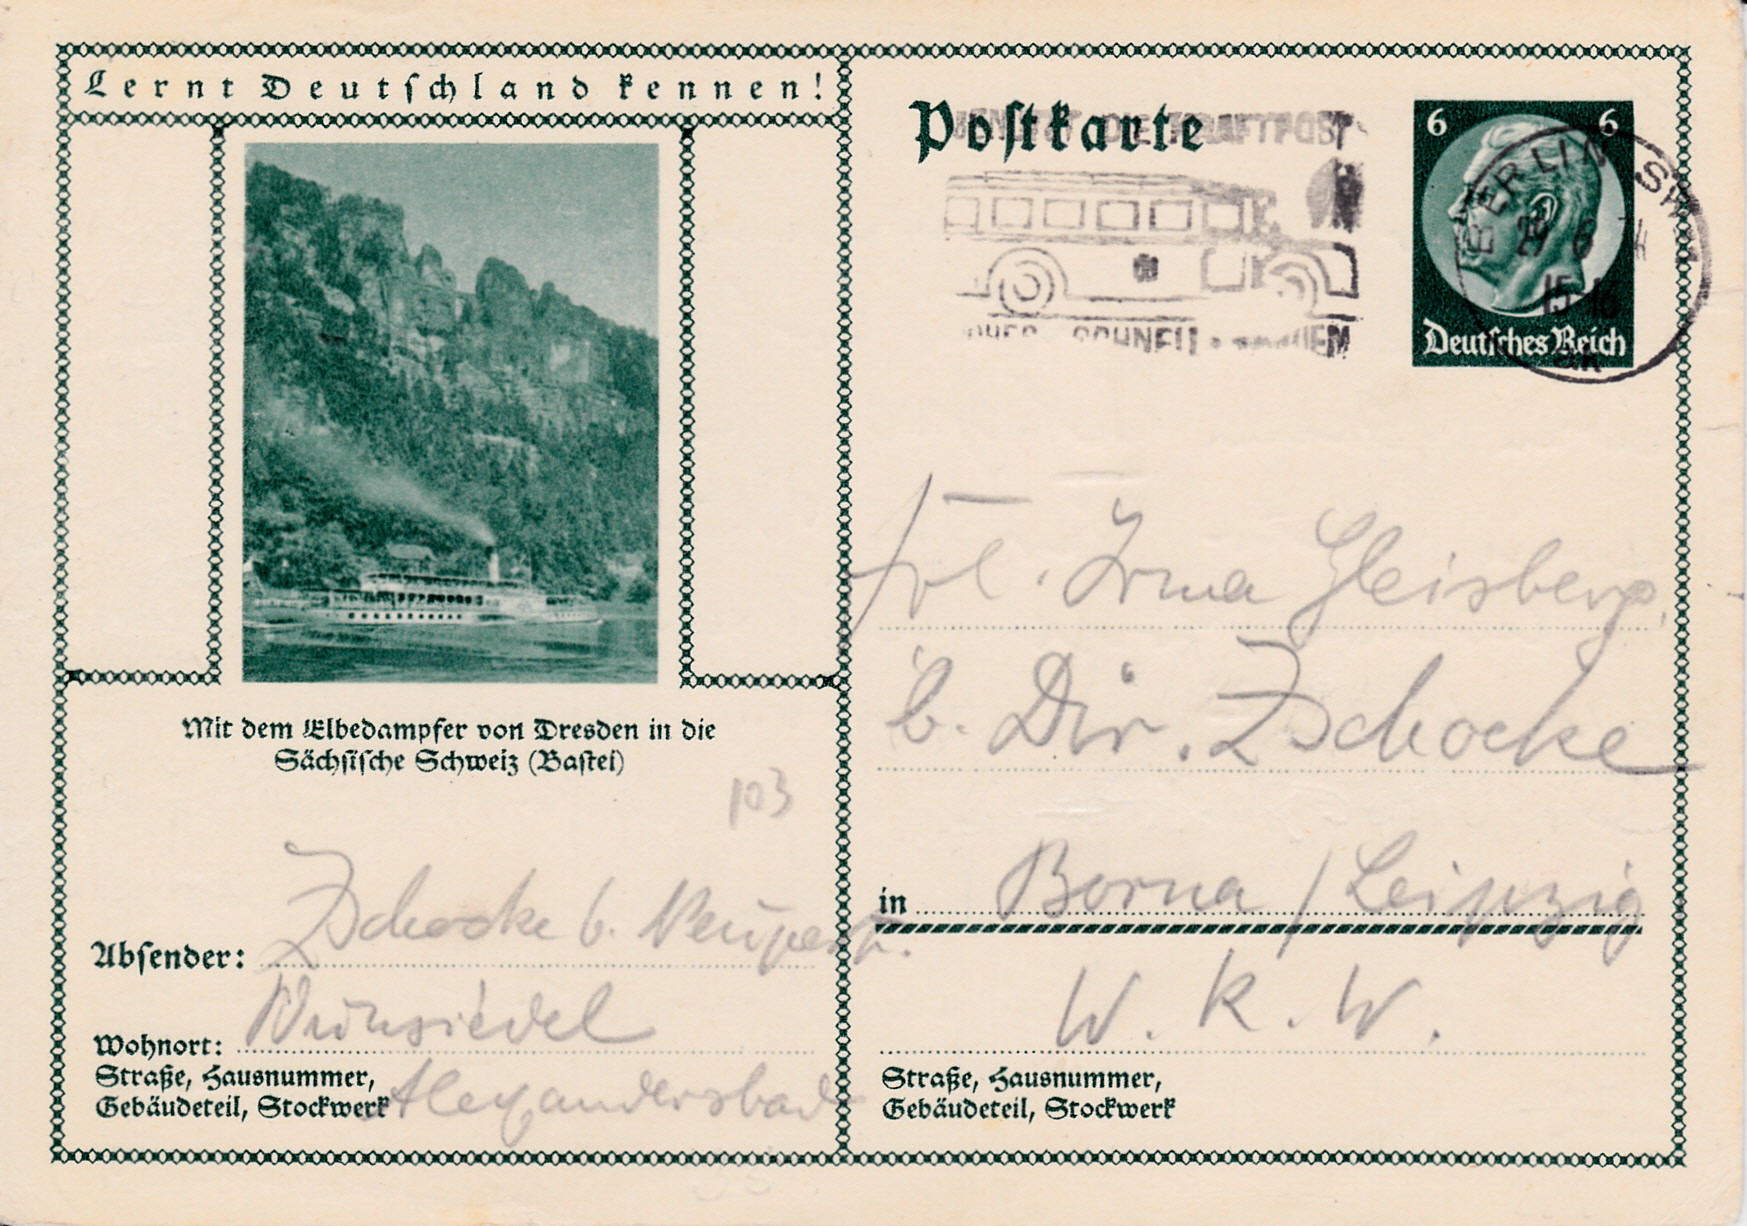 Lernt Deutschland kennen!
Mit dem Elbedampfer von Dresden in die
Sächsische Schweiz (Bastei)
103
Absender: Zschocke b. Neupert.
Wohnort: Wunsiedel
Straße, Hausnummer,
Gebäudeteil, Stockwerk Alexandersbad
Postkarte
DIE KRAFTPOST
SCHNELL
6 6
Deutsches Reich
BERLIN SW
15-16
Frl. Irma Gleisberg.
b. Dir. Zschocke
in Borna / Leipzig
W. K. W.
Straße, Hausnummer,
Gebäudeteil, Stockwerk